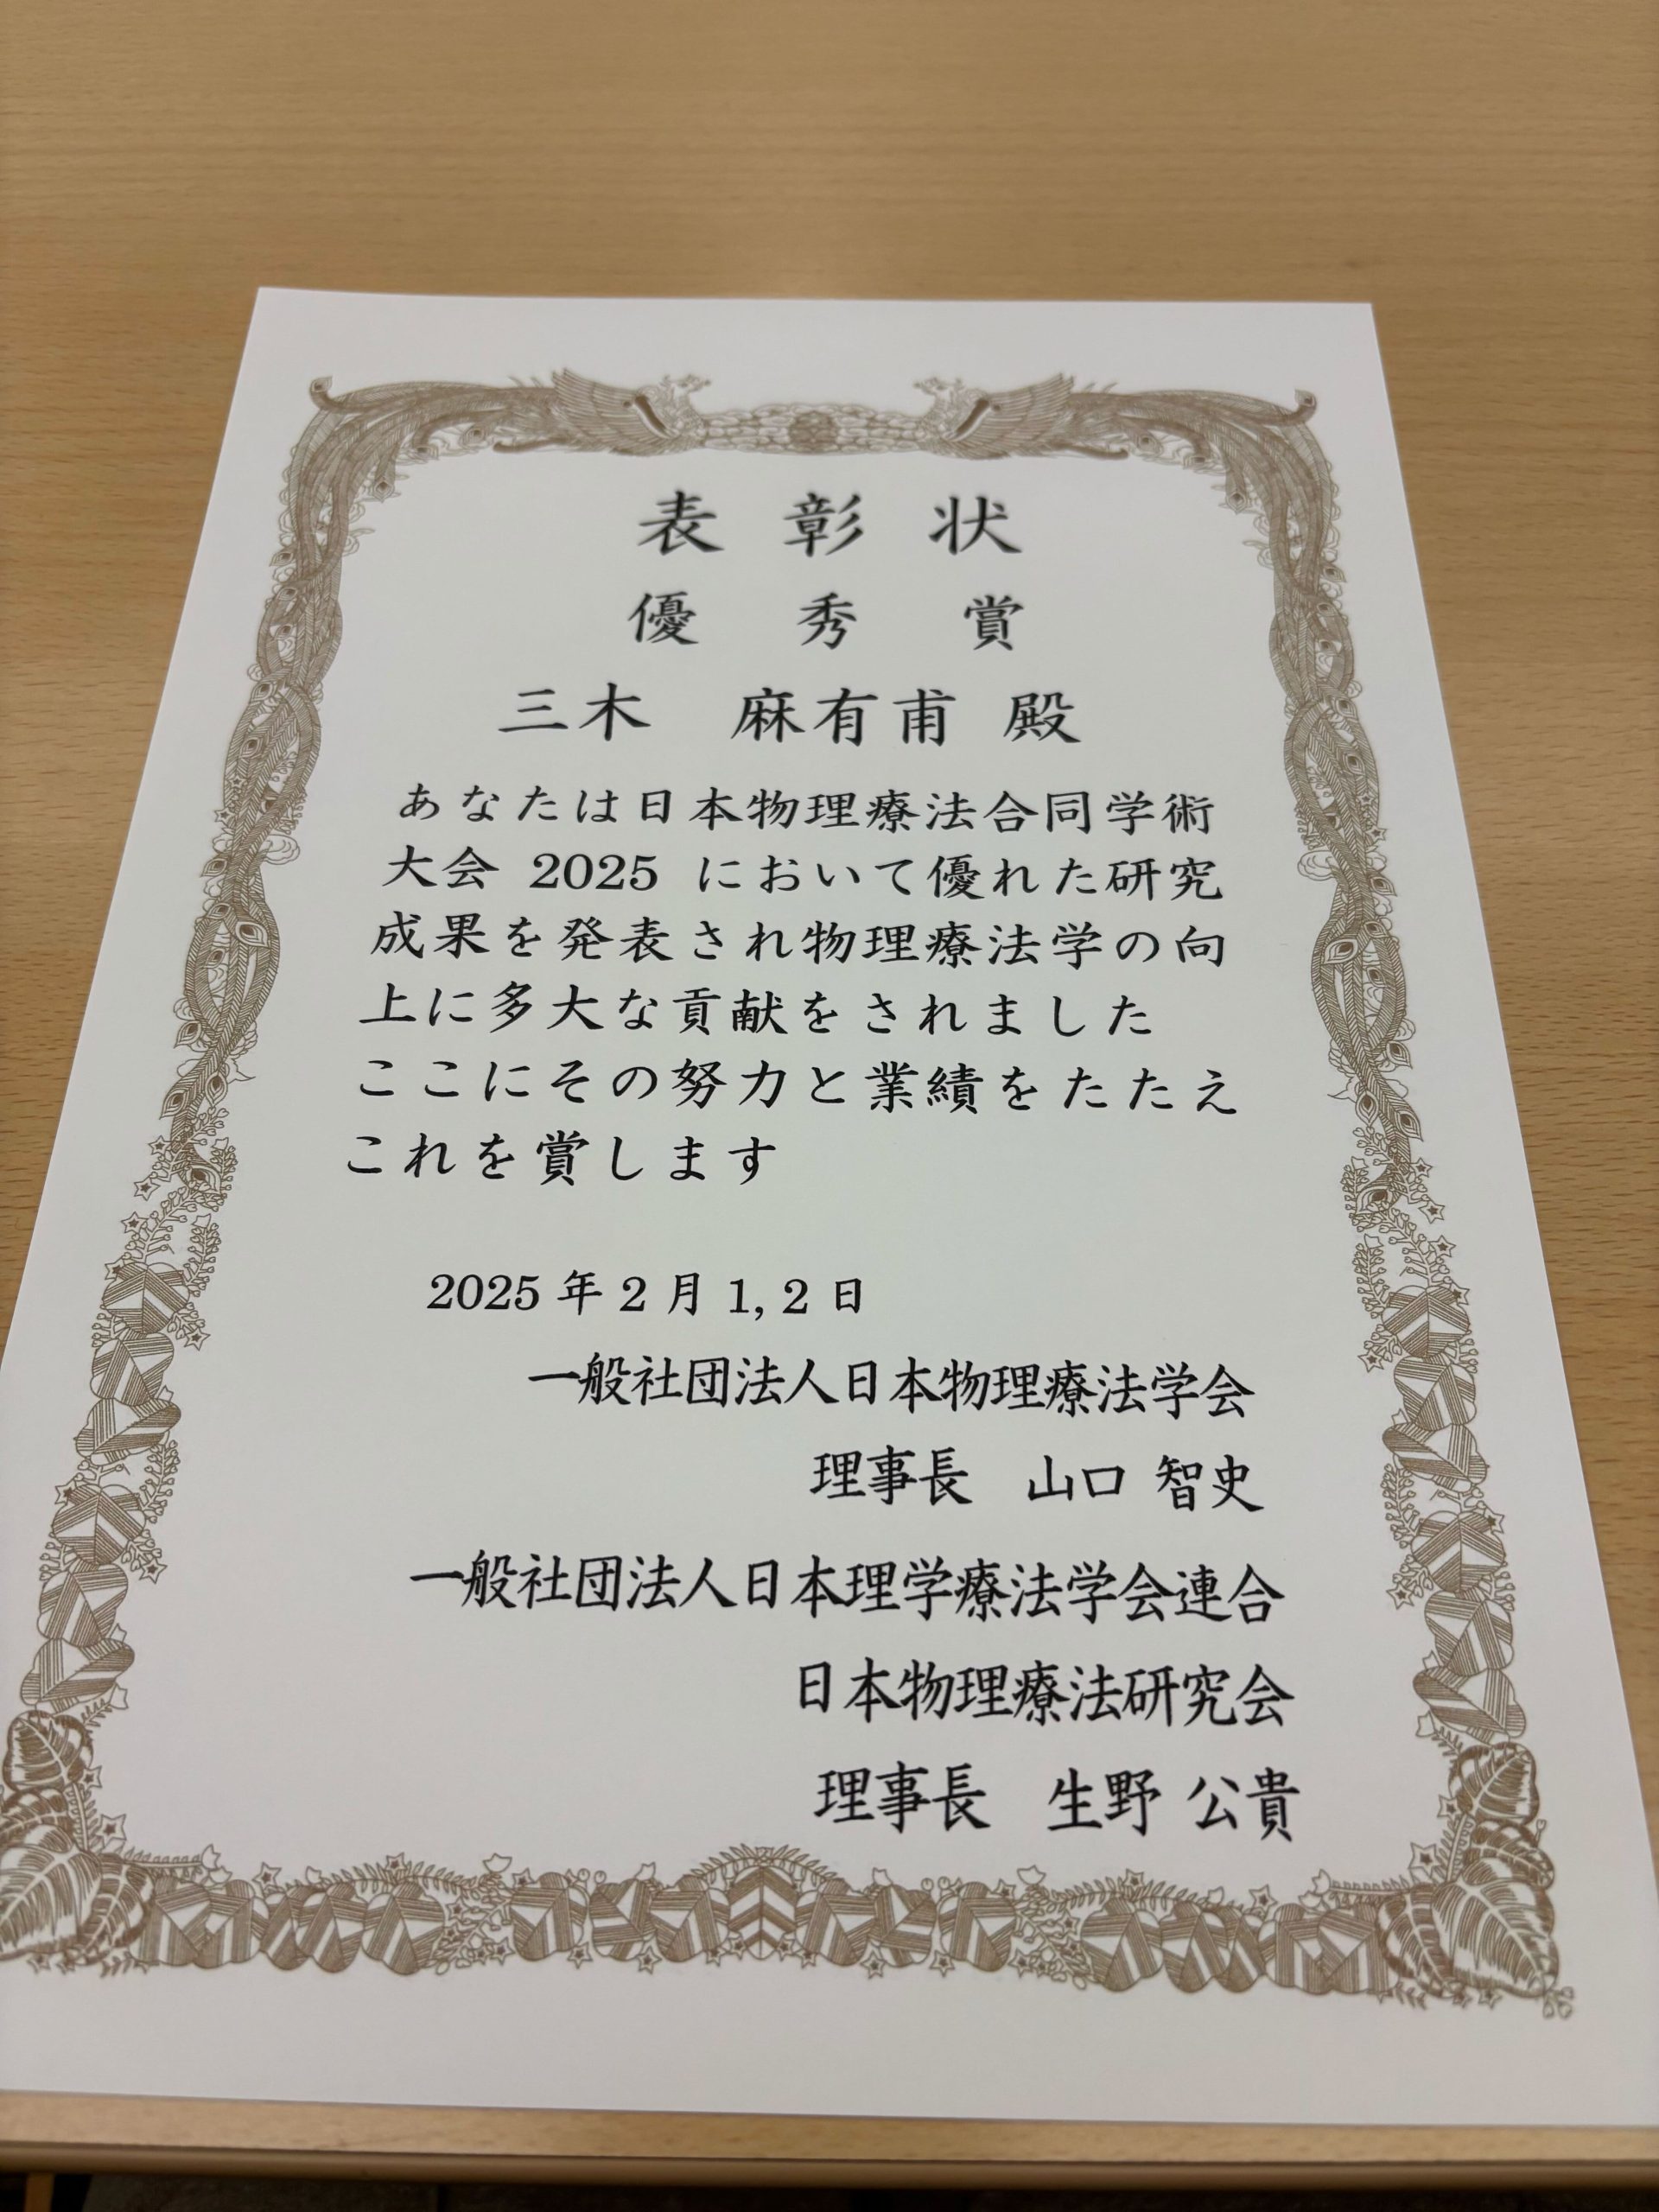 表彰状
優秀賞
三木 麻有甫 殿
あなたは日本物理療法合同学術
大会 2025 において優れた研究
成果を発表され物理療法学の向
上に多大な貢献をされました
ここにその努力と業績をたたえ
これを賞します
2025 年 2 月 1, 2 日
一般社団法人日本物理療法学会
理事長 山口 智史
一般社団法人日本理学療法学会連合
日本物理療法研究会
理事長 生野 公貴